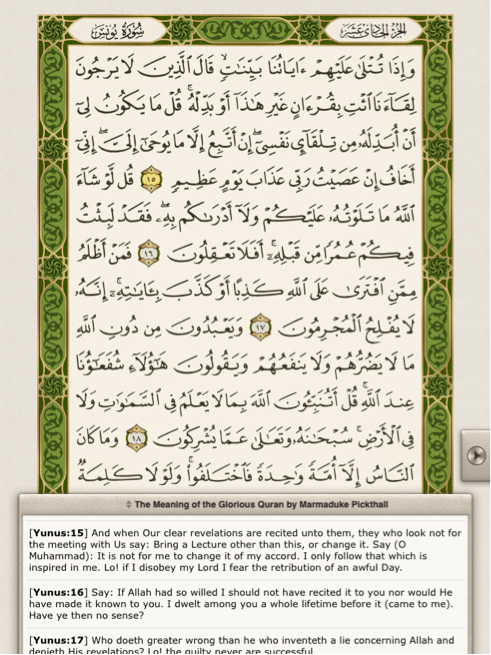 سُورَةُ يُونُسَ
الجُزْءُ الحَادِي عَشَرَ
وَإِذَا تُتْلَىٰ عَلَيْهِمْ ءَايَاتُنَا بَيِّنَٰتٍ قَالَ ٱلَّذِينَ لَا يَرْجُونَ
لِقَآءَنَا ٱئْتِ بِقُرْءَانٍ غَيْرِ هَٰذَآ أَوْ بَدِّلْهُ ۚ قُلْ مَا يَكُونُ لِىٓ
أَنْ أُبَدِّلَهُۥ مِن تِلْقَآئِ نَفْسِىٓ ۖ إِنْ أَتَّبِعُ إِلَّا مَا يُوحَىٰٓ إِلَىَّ ۖ إِنِّىٓ
أَخَافُ إِنْ عَصَيْتُ رَبِّى عَذَابَ يَوْمٍ عَظِيمٍ ١٥ قُل لَّوْ شَآءَ
ٱللَّهُ مَا تَلَوْتُهُۥ عَلَيْكُمْ وَلَآ أَدْرَىٰكُم بِهِۦ ۖ فَقَدْ لَبِثْتُ
فِيكُمْ عُمُرًا مِّن قَبْلِهِۦٓ ۚ أَفَلَا تَعْقِلُونَ ١٦ فَمَنْ أَظْلَمُ
مِمَّنِ ٱفْتَرَىٰ عَلَى ٱللَّهِ كَذِبًا أَوْ كَذَّبَ بِـَٔايَٰتِهِۦٓ ۚ إِنَّهُۥ
لَا يُفْلِحُ ٱلْمُجْرِمُونَ ١٧ وَيَعْبُدُونَ مِن دُونِ ٱللَّهِ
مَا لَا يَضُرُّهُمْ وَلَا يَنفَعُهُمْ وَيَقُولُونَ هَٰٓؤُلَآءِ شُفَعَٰٓؤُنَا
عِندَ ٱللَّهِ ۚ قُلْ أَتُنَبِّـُٔونَ ٱللَّهَ بِمَا لَا يَعْلَمُ فِى ٱلسَّمَٰوَٰتِ وَلَا
فِى ٱلْأَرْضِ ۚ سُبْحَٰنَهُۥ وَتَعَٰلَىٰ عَمَّا يُشْرِكُونَ ١٨ وَمَا كَانَ
ٱلنَّاسُ إِلَّآ أُمَّةً وَٰحِدَةً فَٱخْتَلَفُوا۟ ۚ وَلَوْلَا كَلِمَةٌ
The Meaning of the Glorious Quran by Marmaduke Pickthall
[Yunus:15] And when Our clear revelations are recited unto them, they who look not for
the meeting with Us say: Bring a Lecture other than this, or change it. Say (O
Muhammad): It is not for me to change it of my accord. I only follow that which is
inspired in me. Lo! if I disobey my Lord I fear the retribution of an awful Day.
[Yunus:16] Say: If Allah had so willed I should not have recited it to you nor would He
have made it known to you. I dwelt among you a whole lifetime before it (came to me).
Have ye then no sense?
[Yunus:17] Who doeth greater wrong than he who inventeth a lie concerning Allah and
denieth His revelations? Lo! the guilty never are successful.